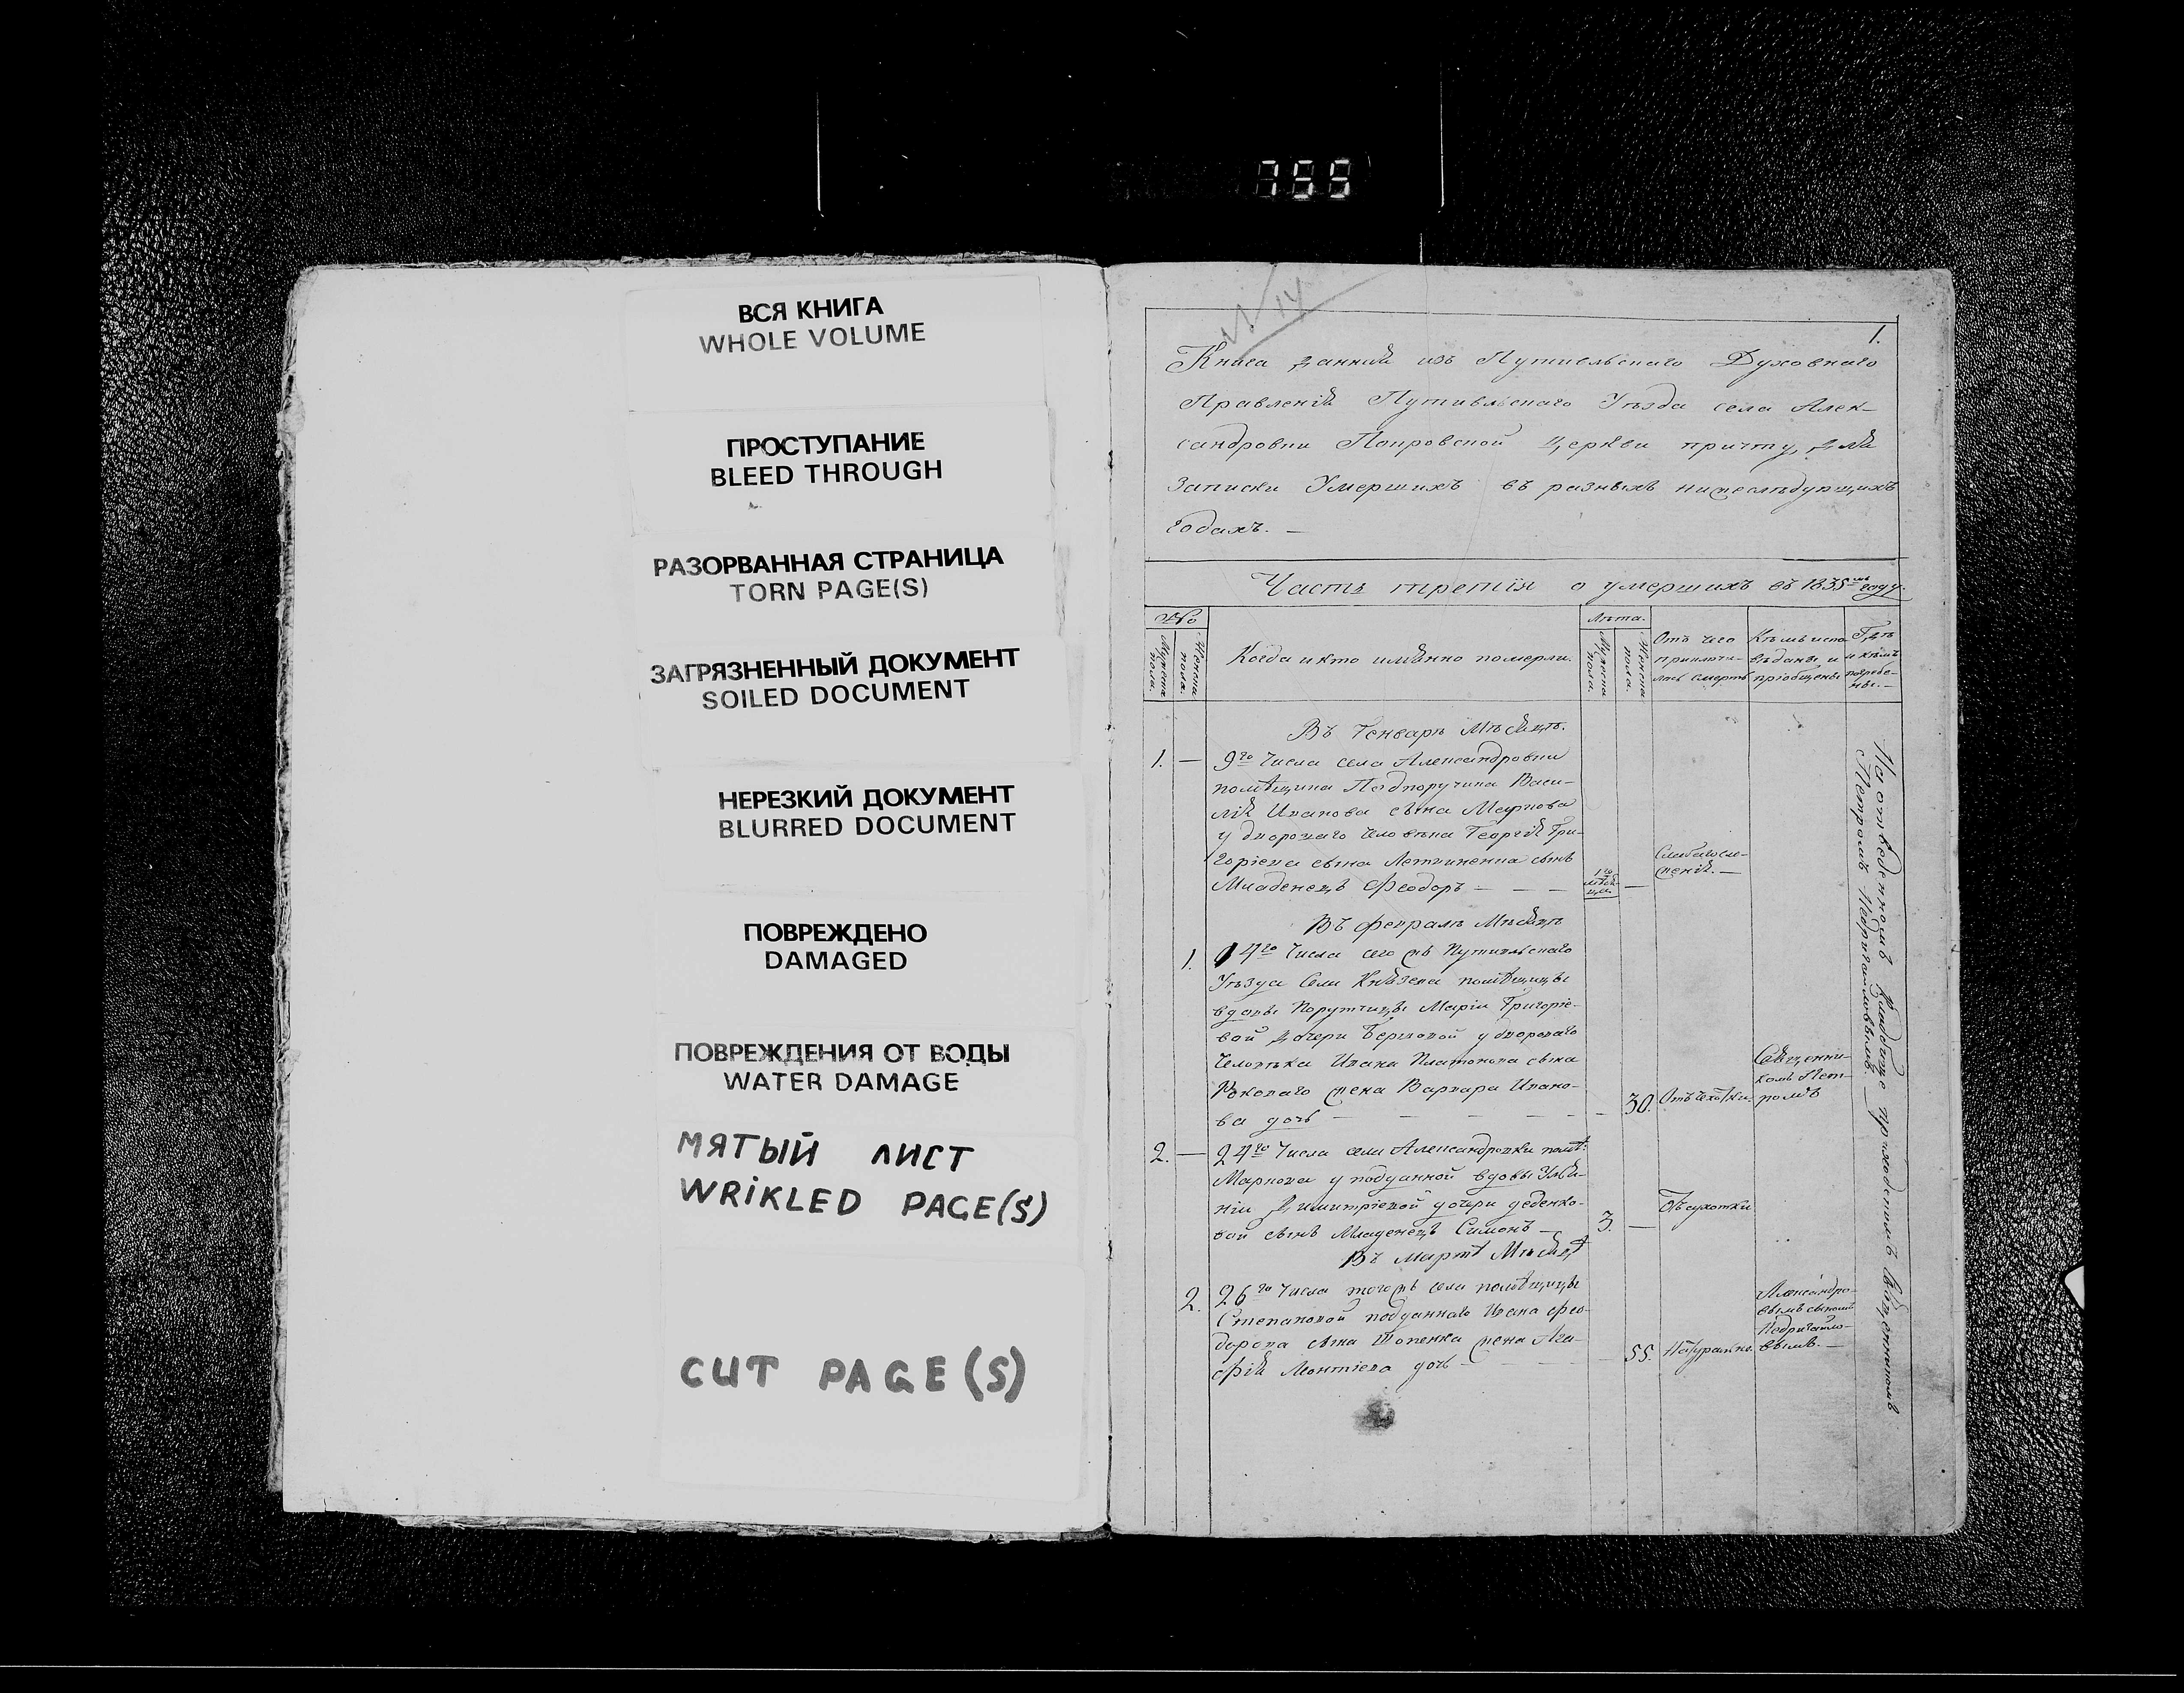 755
ВСЯ КНИГА
WHOLE VOLUME
ПРОСТУПАНИЕ
BLEED THROUGH
РАЗОРВАННАЯ СТРАНИЦА
TORN PAGE(S)
ЗАГРЯЗНЕННЫЙ ДОКУМЕНТ
SOILED DOCUMENT
НЕРЕЗКИЙ ДОКУМЕНТ
BLURRED DOCUMENT
ПОВРЕЖДЕНО
DAMAGED
ПОВРЕЖДЕНИЯ ОТ ВОДЫ
WATER DAMAGE
МЯТЫЙ ЛИСТ
WRiKLED PAGE(S)
CUT PAGE(S)
N 14
1.
Книга данная изъ Путивльскаго Духовнаго
Правленія Путивльскаго Уѣзда села Алек-
сандровки Покровской церкви причту, для
записки Умершихъ въ разныхъ нижеслѣдующихъ
годахъ. —
Часть третія о умершихъ въ 1835мъ году.
№
Мужеска пола.
Женска пола.
Когда и кто имянно померли.
Лѣта.
Мужеска пола.
Женска пола.
Отъ чего
приключи-
лась смерть
Кѣмъ испо-
вѣданы и
пріобщены
Гдѣ
и кѣмъ
погребе-
ны. —
Въ Генварѣ Мѣсяцѣ.
1. — 9го Числа села Александровки
помѣщика Подпоручика Васи-
лія Иванова сына Маркова
у двороваго человѣка Георгія Гри-
горіева сына сынъ
Младенецъ Феодоръ — — —
1го мѣсяца —
Въ февралѣ Мѣсяцѣ
1. 4го Числа сего жъ Путивльскаго
Уѣзда Села помѣщицы
вдовы Порутчицы Маріи Григоріе-
вой дочери у двороваго
Человѣка Ивана Платонова сына
жена Варвара Ивано-
ва дочь — — — — 30.
Священни-
комъ Пет-
ромъ
2. — 24го Числа села Александровки помѣ:
Маркова у подданной вдовы Улья-
ніи Димитріевой дочери
сынъ Младенецъ Симонъ — 3. —
Отъ сухотки
Въ Мартѣ Мѣсяцѣ
2. 26го Числа тогожъ села помѣщицы
Степановой подданнаго Ивана Фео-
дорова сына жена Ага-
фія Леонтіева дочь — — 55. Натурально.
Александро-
вымъ сыномъ
Недригайло-
вымъ. —
На отведенномъ Кладбище Священникомъ
Петромъ Недригайловымъ. —